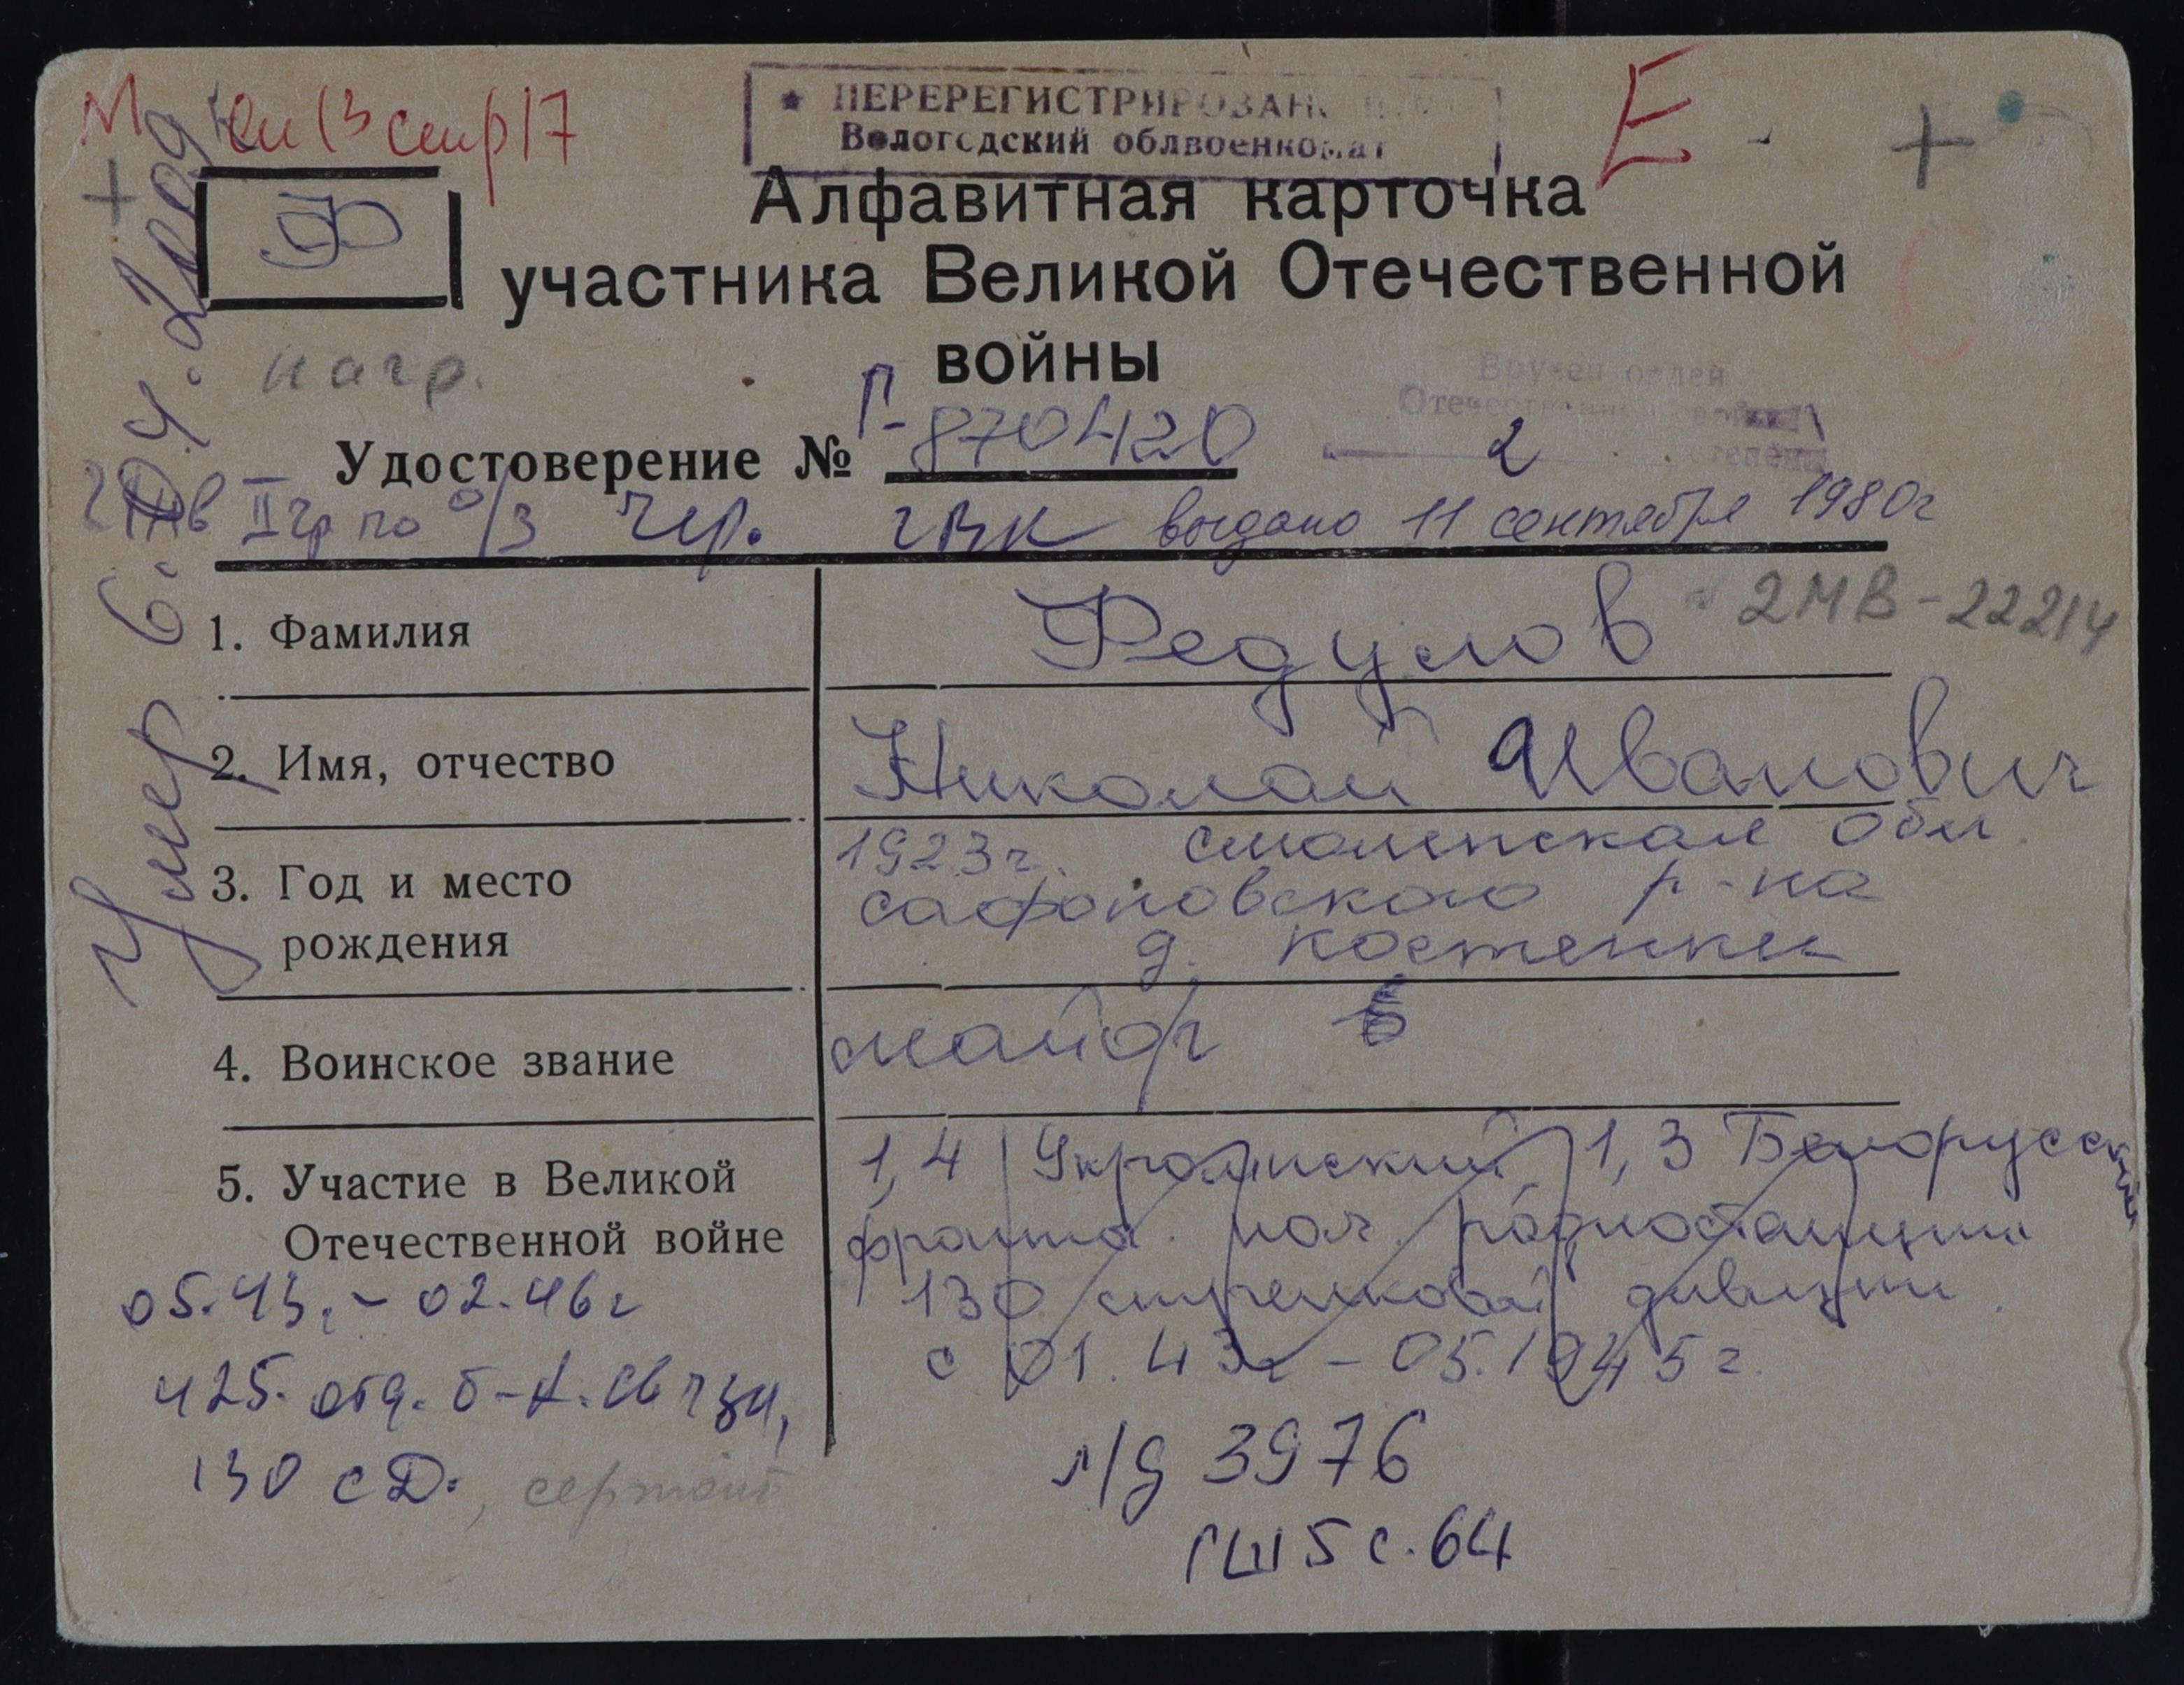 ПЕРЕРЕГИСТРИРОВАН
Вологодский облвоенкомат
Е
Алфавитная карточка
участника Великой Отечественной
войны
Ф
нагр.
Вручен орден
Отечественной войны
2 степени
Удостоверение № Г-870420
II гр по о/з Чер. ГВК выдано 11 сентября 1980г
Умер 6.04.2009
1. Фамилия
Федулов
2МВ-22214
2. Имя, отчество
Николай Иванович
3. Год и место
рождения
1923г. Смоленская обл.
Сафоновского р-на
д. Костенки
4. Воинское звание
майор
5. Участие в Великой
Отечественной войне
1,4 Украинский, 1,3 Белорусский
фронта. нач. радиостанции
130 стрелковой дивизии.
с 01.43г - 05.1945г.
05.43г - 02.46г
425 отд. б-н. связи,
130 СД., сержант
л/д 3976
ГШ 5 с. 64